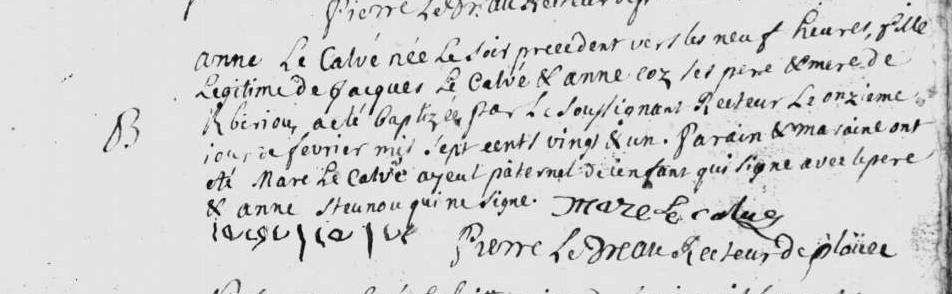 Pierre Le Dreau Recteur
anne Le Calvé née Le soir precedent vers les neuf heures, fille
Legitime de Jacques Le Calvé & anne coz ses pere & mere de
Kberiou, a eté baptizée par Le Soussignant Recteur Le onzieme
jour de fevrier mil sept cents vingt & un. Parain & maraine ont
eté Marc Le Calvé ayeul paternel de l'enfant qui signe avec le pere
& anne steunou qui ne signe. Marc Le calvez
Pierre Le Dreau Recteur de ploüee
B